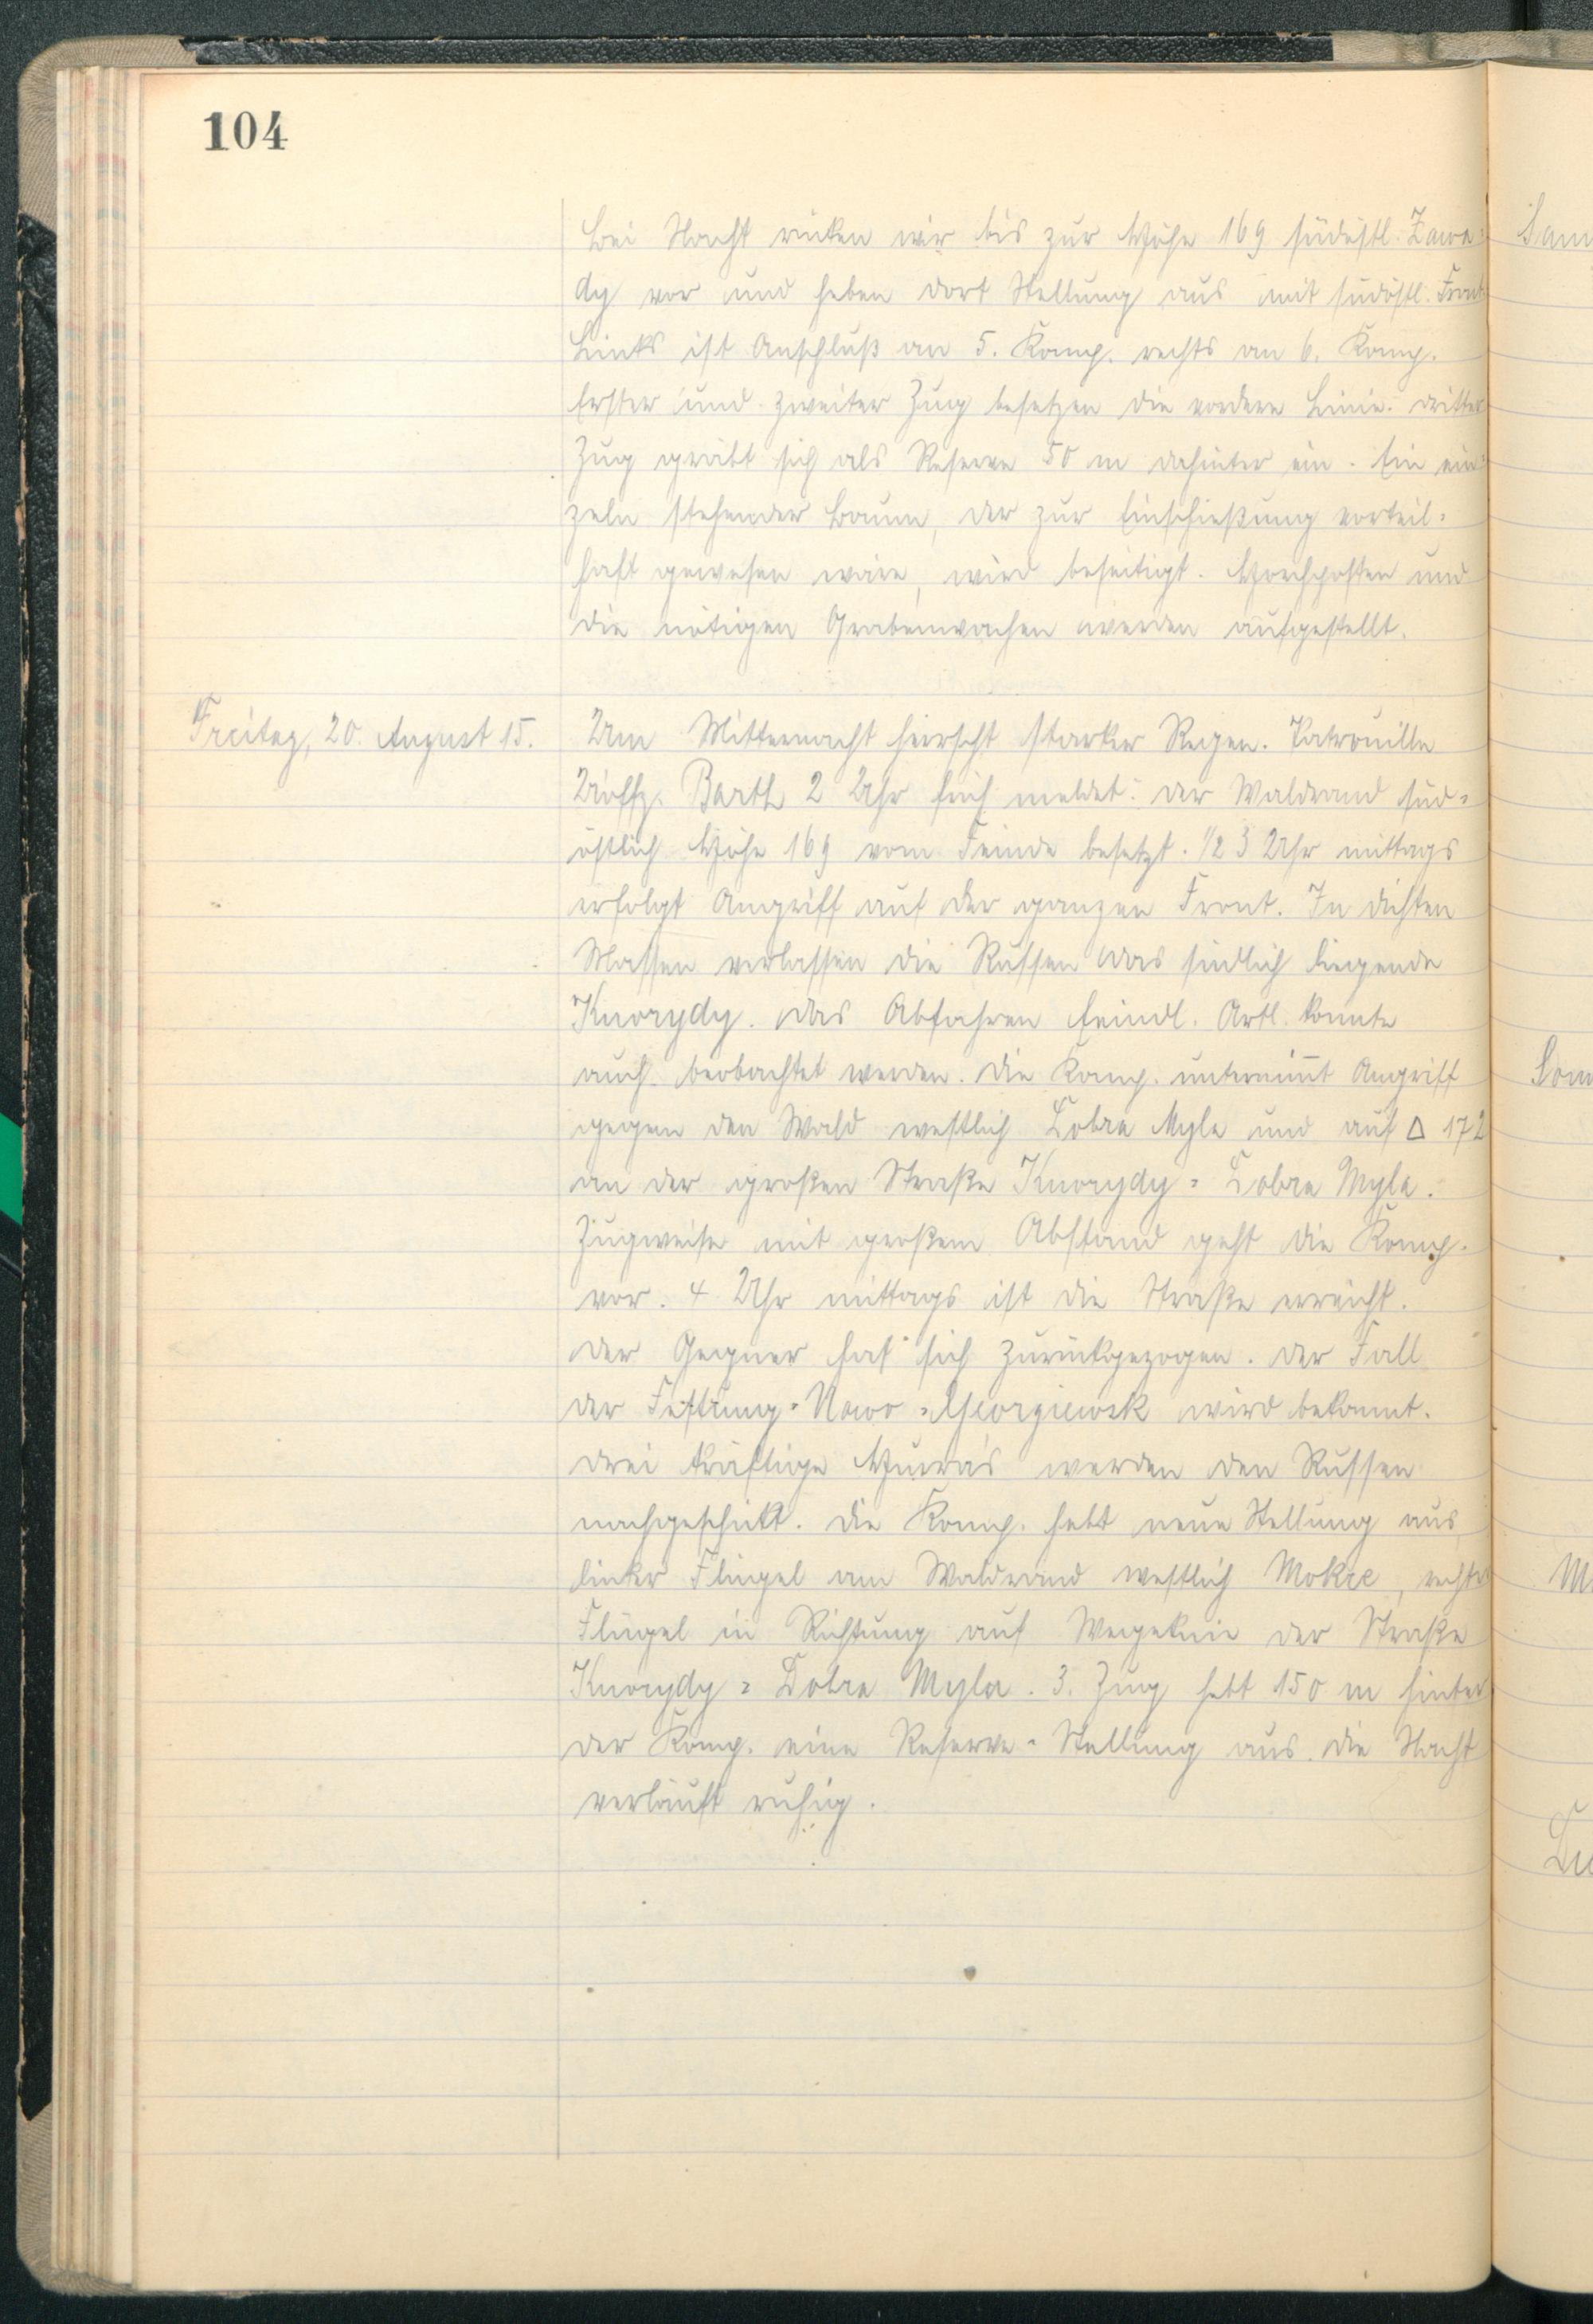 104
Bei Nacht rücken wir bis zur Höhe 169 südöstl. Zawa-
dy vor und heben dort Stellung aus mit südöstl. Front.
Links ist Anschluß an 5. Komp. rechts an 6. Komp.
Erster und zweiter Zug besetzen die vordere Linie. dritter
Zug gräbt sich als Reserve 50 m dahinter ein. Ein ein-
zeln stehender Baum, der zur Einschießung vorteil-
haft gewesen wäre, wird beseitigt. Horchposten und
die nötigen Grabenwachen werden aufgestellt.
Freitag, 20. August 15.
Um Mitternacht herrscht starker Regen. Patrouille
Uoffz. Barth 2 Uhr früh meldet: der Waldrand süd-
östlich Höhe 169 vom Feinde besetzt. 1/2 3 Uhr mittags
erfolgt Angriff auf der ganzen Front. In dichten
Massen verlassen die Russen das südlich liegende
Knorydy. das Abfahren feindl. Artl. konnte
auch beobachtet werden. Die Komp. unternim̅t Angriff
gegen den Wald westlich Dobra Myla und auf Δ 172
an der großen Straße Knorydy - Dobra Myla.
Zugweise mit großem Abstand geht die Komp.
vor. 4 Uhr mittags ist die Straße erreicht.
der Gegner hat sich zurückgezogen. der Fall
der Festung - Nowo - Georgiewsk wird bekannt.
drei kräftige Hurra's werden den Russen
nachgeschickt. Die Komp. hebt neue Stellung aus
linker Flügel am Waldrand westlich Mokre, rechter
Flügel in Richtung auf Wegeknie der Straße
Knorydy - Dobra Myla. 3. Zug hebt 150 m hinter
der Komp. eine Reserve - Stellung aus. die Nacht
verläuft ruhig.